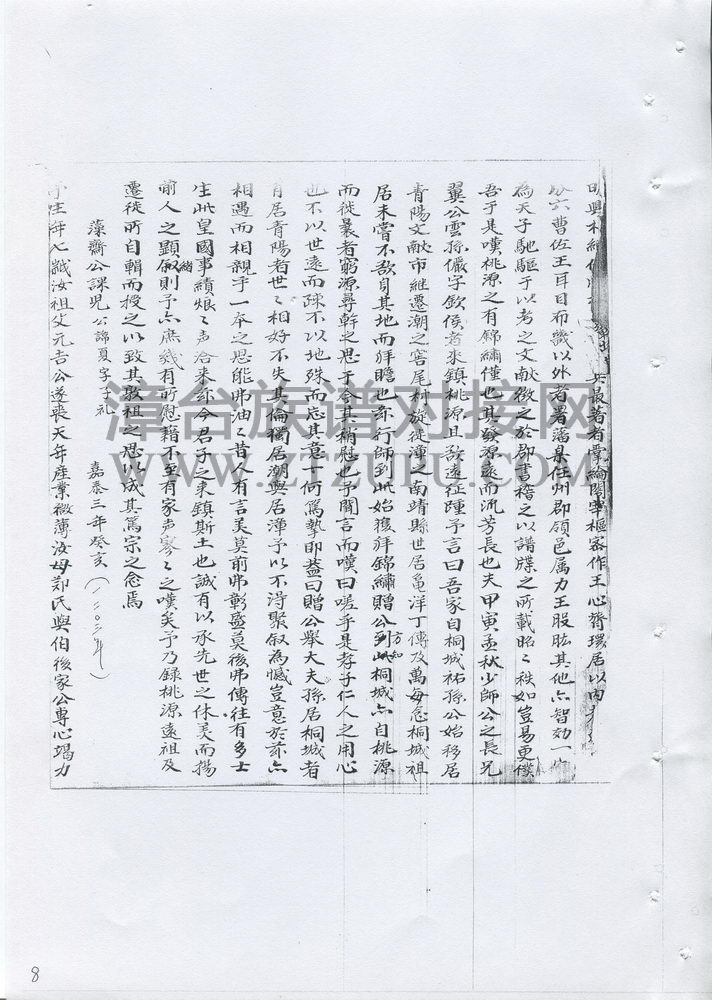 其最著者掌綸閣宰樞密作王心膂環居以内
六曹佐王耳目布畿以外者署藩臬任州郡領邑属力王股肱其他亦智効一
為天子馳驅于以考之文献徵之於郡書稽之以譜牒之所載昭々秩如豈易更僕
吾于是嘆桃源之有錦繡僅也其發源遠而流芳長也夫甲寅孟秋少師公之長兄
翼公雲孫儼字欽侯者來鎮桃源且敦遠征陲予言曰吾家自桐城祐孫公始移居
青陽文献市継遷潮之害尾村旋徙漳之南靖縣世居龜洋丁傳及萬每念桐城祖
居未嘗不敬身其地而拜瞻也亦行師到此始獲拜錦繡贈公方知到此桐城亦自桃源
而徙曩者窮源尋幹之思于今其稍慰也予聞言而嘆曰嗟乎是孝子仁人之用心
也不以世遠而疎不以地殊而忘其意一何篤摯耶盖曰贈公舉大夫孫居桐城者
肖居青陽者世々相好不失其倫獨居潮與居漳予以不得聚叙為憾豈意於茲亦
相遇而相親乎一本之思能弗油々昔人有言美莫前弗彰盛莫後弗傳往有多士
生此皇國事績烺々声洽来茲今君子之来鎮斯土也誠有以承先世之休美而揚
前人之顕緒叙則予亦庶幾有所慰藉不至有家声寥々之嘆矣予乃録桃源遠祖及
遷徙所自輯而授之以致其敦祖之思以成其篤宗之念焉
嘉泰三年癸亥（一二〇三年）
藻齋公課児公諦夏字子礼
年七齡汝祖父元吉公遂喪天年産業微薄汝母鄭氏與伯後家公專心竭力
漳台族谱对接网
WWW.ZTZUPU.COM
8